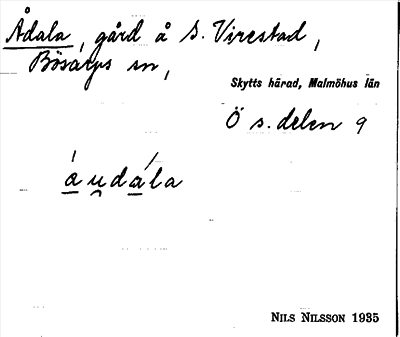 Ådala, gård å S. Virestad,
Bösarps sn,
Skytts härad, Malmöhus län
Ö s. delen 9
áu̯dála
NILS NILSSON 1935